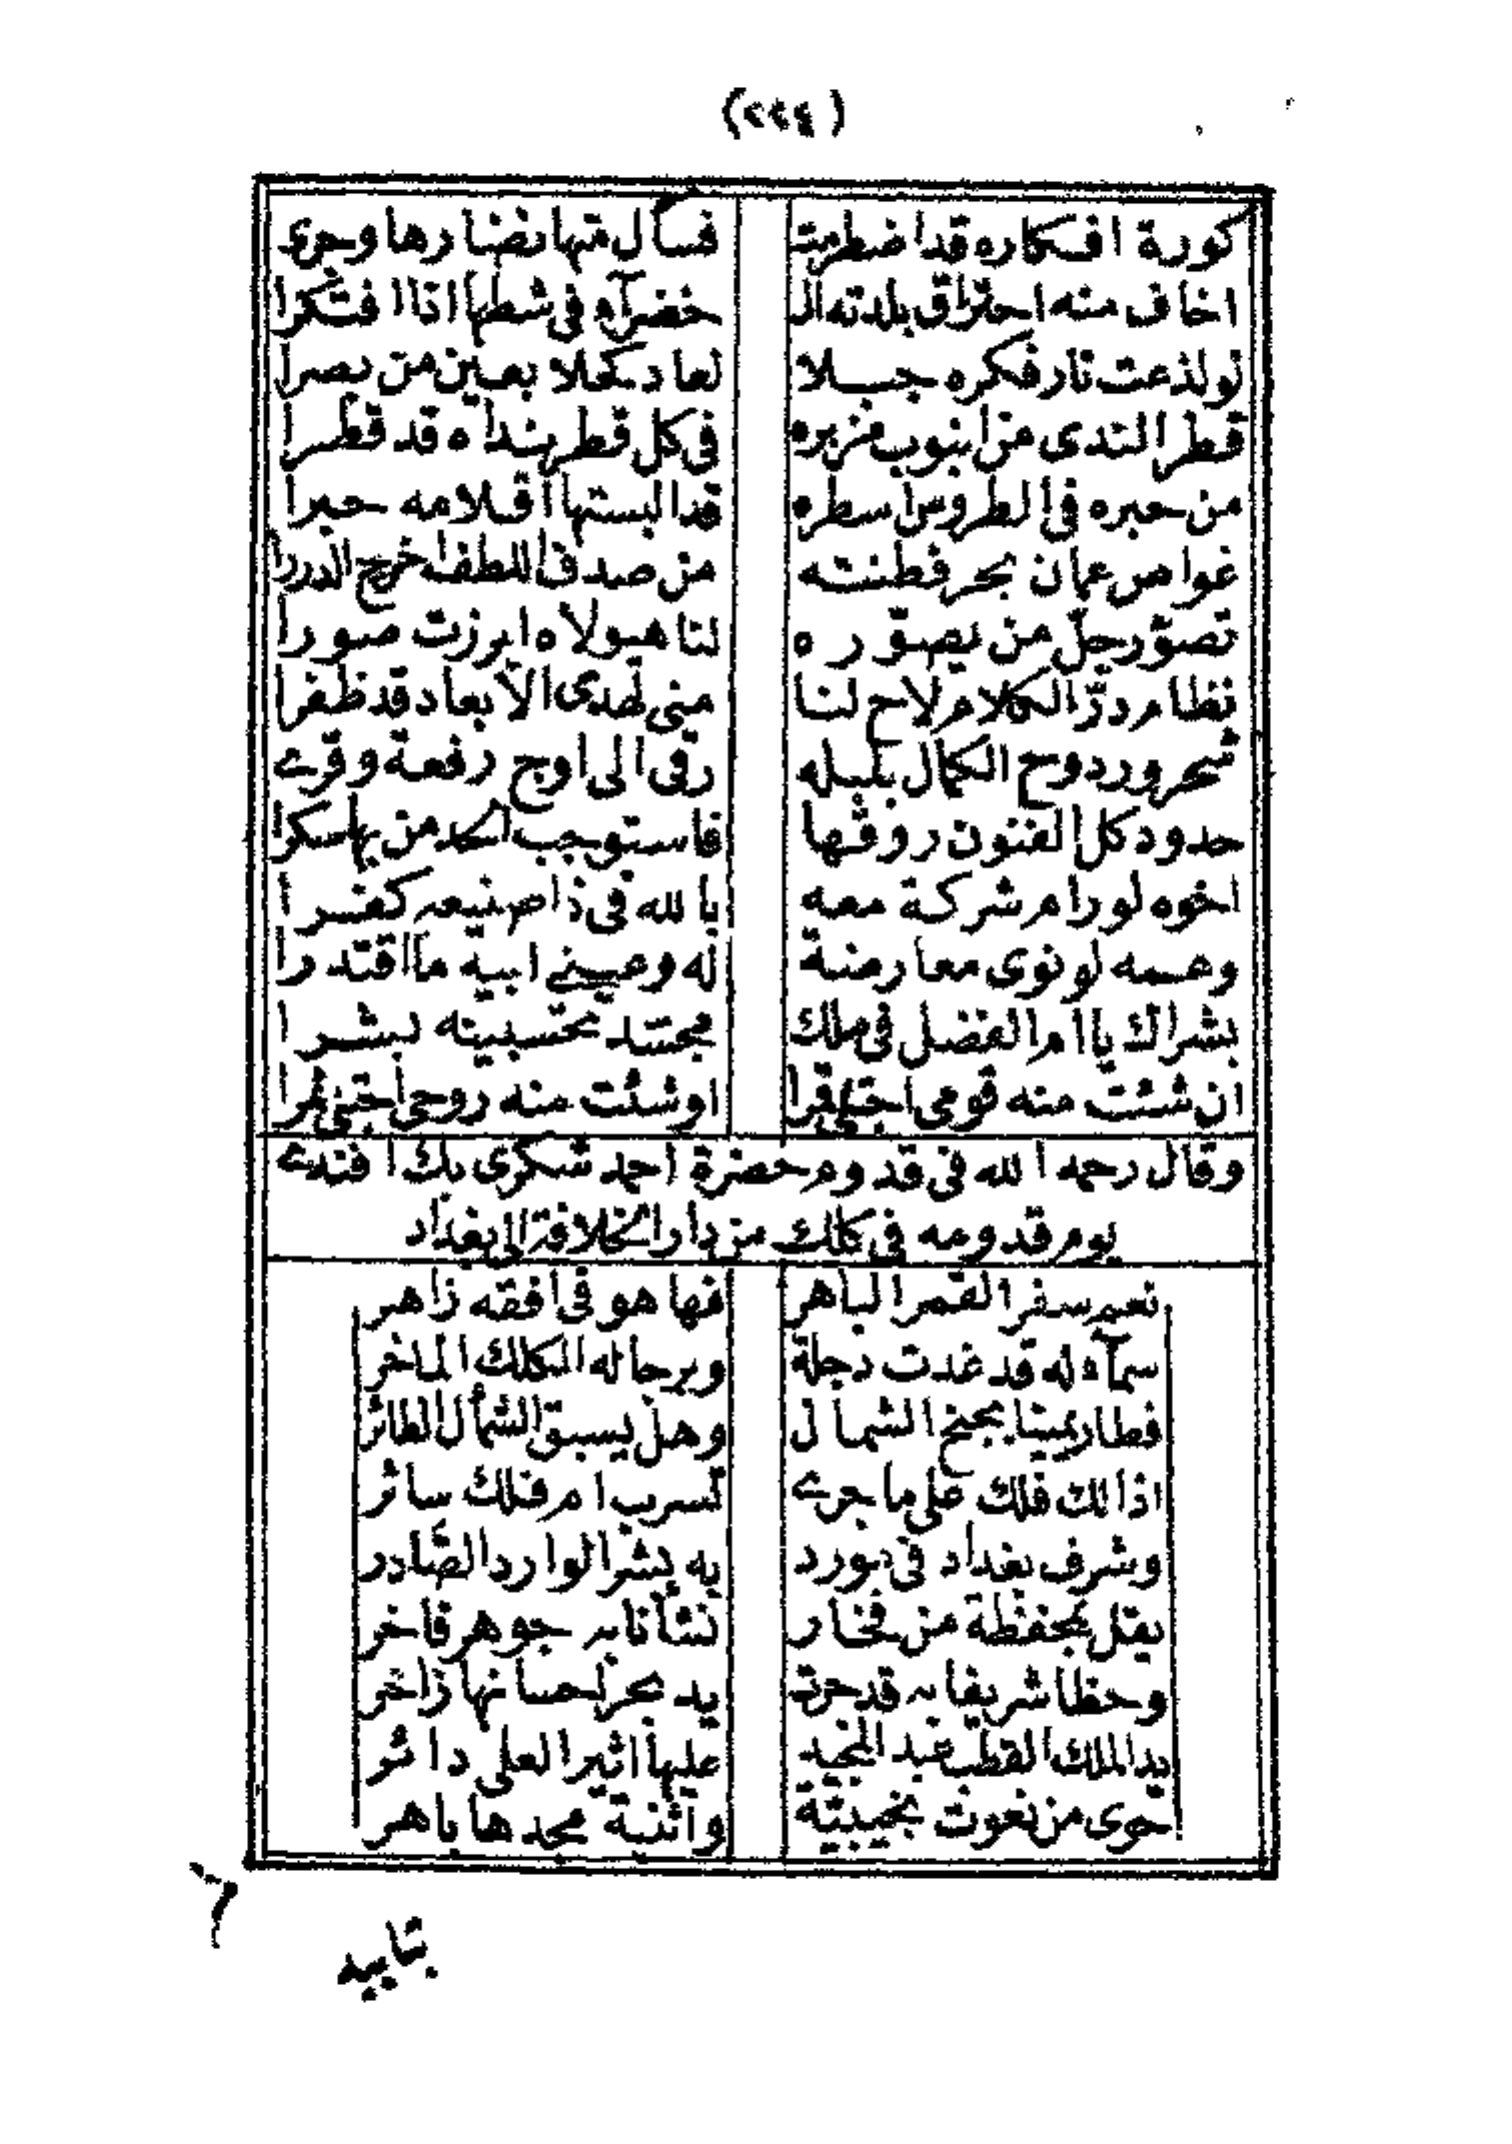 (٢٢٤)
كورة افكاره قد اضطرمت فسال منها نضارها وجرى
اخاف منه احتراق بلدته ال خضرآء فى شطها اذا افتكرا
لو لذعت نار فكره جبلا لعاد كحلا بعين من بصرا
قطر الندى من انبوب مزبره فى كل قطر بنداه قد قطرا
من حبره فى الطروس اسطره قد البستها اقلامه حبرا
غواص عمان بحر فطنته من صدف اللطف اخرج الدررا
تصوّر جلّ من يصوّره لنا هيولاه ابرزت صورا
نظام درّ الكلام لاح لنا متى لهدى الابعاد قد ظفرا
شحرور دوح الكمال بلبله رقى الى اوج رفعة وقرى
حدود كل الفنون روقها فاستوجب الحد من بها سكرا
اخوه لو رام شركة معه بالله فى ذا صنيعه كفرا
وعمه لو نوى معارضة له وعينى ابيه ما اقتدرا
بشراك يا ام الفضل فى ملك مجسّد تحسبينه بشرا
ان شئت منه قومى اجتلى قمرا او شئت منه روحى اجتنى ثمرا
وقال رحمه الله فى قدوم حضرة احمد شكرى بك افندى
يوم قدومه فى كلك من دار الخلافة الى بغداد
نعم سفر القمر الباهر فها هو فى افقه زاهر
سمآء له قد غدت دجلة وبرجا له الكلك الماخر
فطار يمينا بجنح الشمال وهل يسبق الشمأل الطائر
اذلك فلك على ما جرى تسرب ام فلك سائر
وشرف بغداد فى مورد به بشر الوارد الصّادر
يقل بمحفظة من فخار نشانا به جوهر فاخر
وحظا شريفا به قد حرت يد بحر احسانها زاخر
يد الملك القطب عبد المجيد عليها اثير العلى دائر
حوى من نعوت نجيبيّة واثنية مجدها باهر
بتاييد